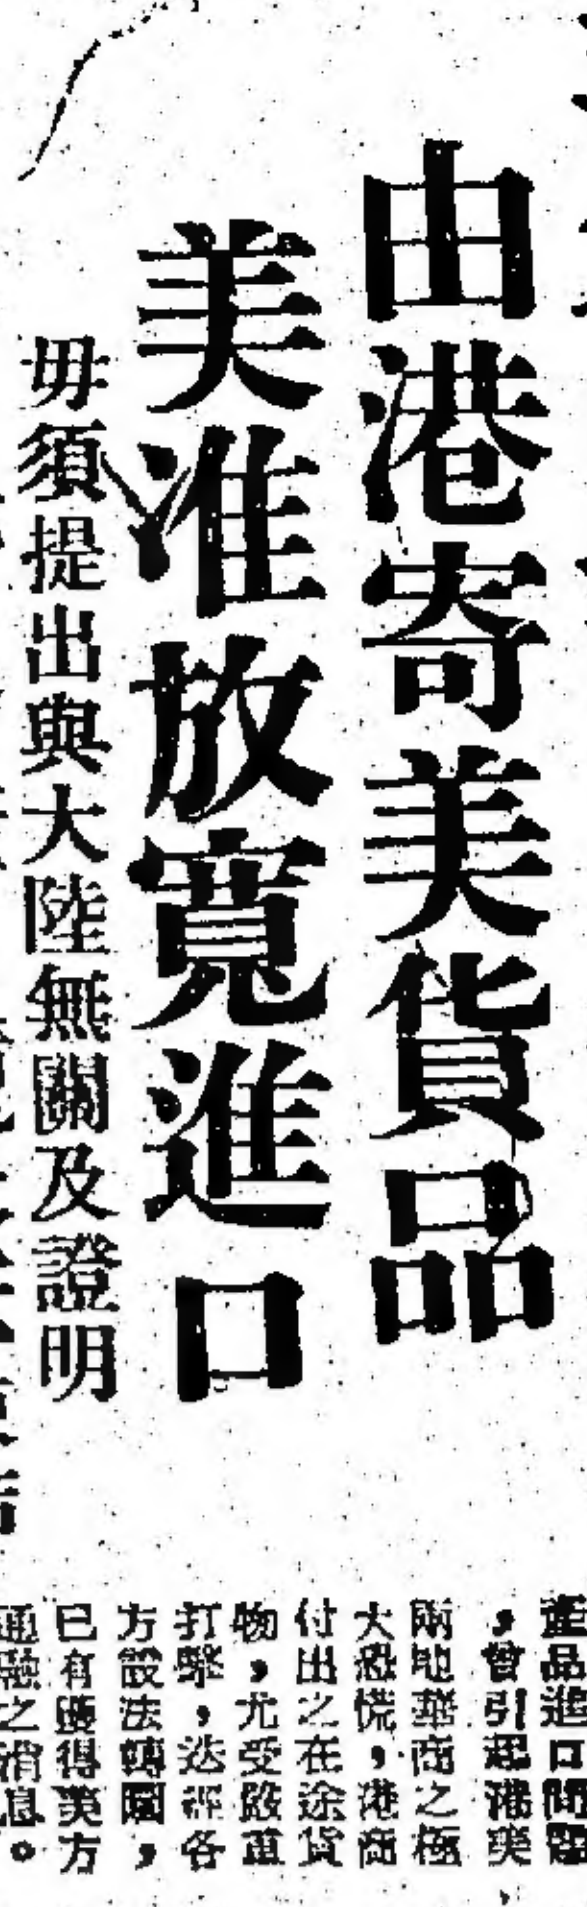 由港寄美貨品
美准放寬進口
毋須提出與大陸無關及證明
產品進口問題
，曾引起港美
兩地華商之極
大恐慌，港商
付出之在途貨
物，尤受嚴重
打擊，迭經各
方設法轉圜，
已有獲得美方
通融之消息。